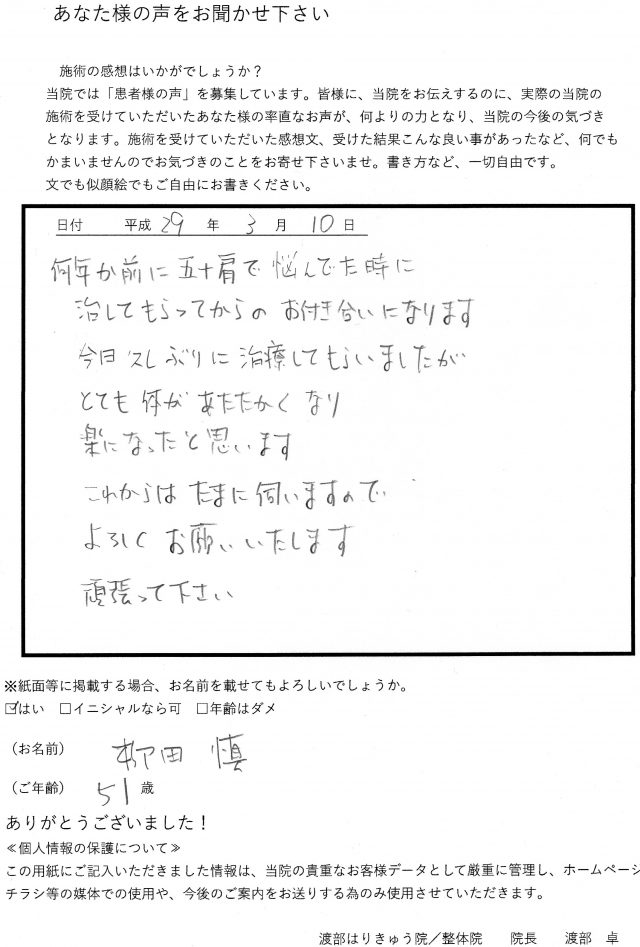 あなた様の声をお聞かせ下さい
施術の感想はいかがでしょうか？
当院では「患者様の声」を募集しています。皆様に、当院をお伝えするのに、実際の当院の
施術を受けていただいたあなた様の率直なお声が、何よりの力となり、当院の今後の気づき
となります。施術を受けていただいた感想文、受けた結果こんな良い事があったなど、何でも
かまいませんのでお気づきのことをお寄せ下さいませ。書き方など、一切自由です。
文でも似顔絵でもご自由にお書きください。
日付 平成 29 年 3 月 10 日
何年か前に五十肩で悩んでた時に
治してもらってからのお付き合いになります
今日久しぶりに治療してもらいましたが
とても体があたたかくなり
楽になったと思います
これからはたまに伺いますので
よろしくお願いいたします
頑張って下さい
※紙面等に掲載する場合、お名前を載せてもよろしいでしょうか。
☑はい □イニシャルなら可 □年齢はダメ
（お名前） 柳田 慎
（ご年齢） 51 歳
ありがとうございました！
≪個人情報の保護について≫
この用紙にご記入いただきました情報は、当院の貴重なお客様データとして厳重に管理し、ホームページ
チラシ等の媒体での使用や、今後のご案内をお送りする為のみ使用させていただきます。
渡部はりきゅう院／整体院 院長 渡部 卓